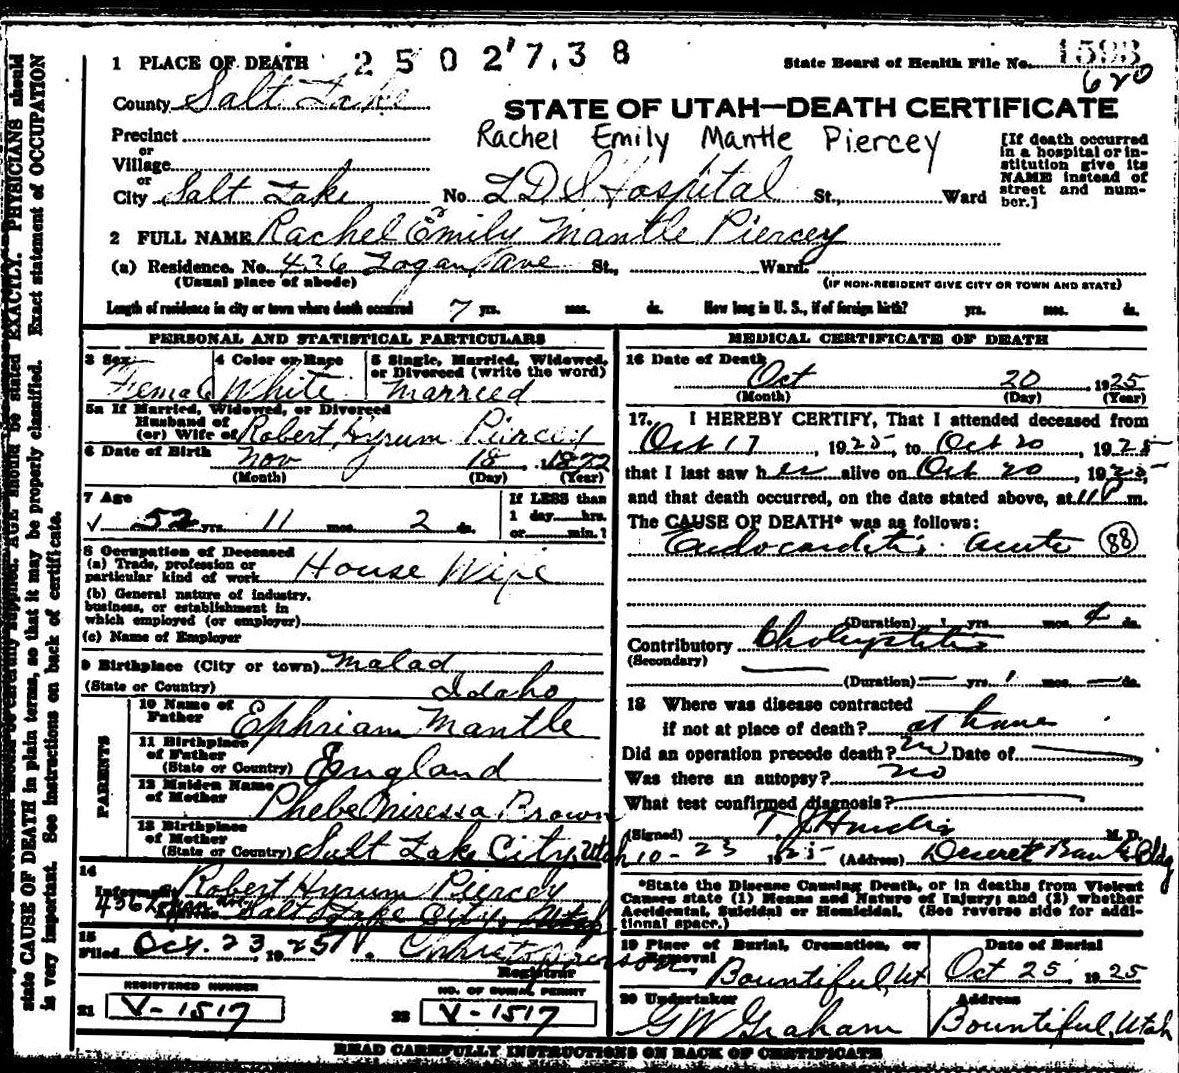 1 PLACE OF DEATH 2502738
State Board of Health File No. 1593
620
County Salt Lake
STATE OF UTAH—DEATH CERTIFICATE
Rachel Emily Mantle Piercey
Precinct
or
Village
or
City Salt Lake No. L D S Hospital St., Ward
[If death occurred in a hospital or institution give its NAME instead of street and number.]
2 FULL NAME Rachel Emily Mantle Piercey
or
(a) Residence. No. 436 Logan Ave St., Ward.
(Usual place of abode)
(IF NON-RESIDENT GIVE CITY OR TOWN AND STATE)
Length of residence in city or town where death occurred 7 yrs. mos. ds. How long in U. S., if of foreign birth? yrs. mos. ds.
PERSONAL AND STATISTICAL PARTICULARS
3 Sex Female
4 Color or Race White
5 Single, Married, Widowed, or Divorced (write the word) Married
5a If Married, Widowed, or Divorced
Husband of
(or) Wife of Robert Hyrum Piercey
6 Date of Birth Nov 18, 1872
(Month) (Day) (Year)
7 Age
52 yrs. 11 mos. 2 ds.
If LESS than
1 day hrs.
or min.?
8 Occupation of Deceased
(a) Trade, profession or
particular kind of work House Wife
(b) General nature of industry,
business, or establishment in
which employed (or employer)
(c) Name of Employer
9 Birthplace (City or town) Malad
(State or Country) Idaho
PARENTS
10 Name of
Father Ephriam Mantle
11 Birthplace
of Father
(State or Country) England
12 Maiden Name
of Mother Phebe Niressa Brown
13 Birthplace
of Mother
(State or Country) Salt Lake City, Utah
14
Informant Robert Hyrum Piercey
436 Logan Ave Salt Lake City, Utah
15
Filed Oct. 23, 1925
Registrar
REGISTERED NUMBER
21 V-1517
NO. OF BURIAL PERMIT
22 V-1517
MEDICAL CERTIFICATE OF DEATH
16 Date of Death
Oct 20, 1925
(Month) (Day) (Year)
17. I HEREBY CERTIFY, That I attended deceased from
Oct 17, 1925, to Oct 20, 1925
that I last saw her alive on Oct 20, 1925,
and that death occurred, on the date stated above, at 11 P m.
The CAUSE OF DEATH* was as follows:
Endocarditis acute 88
(Duration) yrs. mos. 4 ds.
Contributory
(Secondary)
(Duration) — yrs. 1 mos. — ds.
18 Where was disease contracted
if not at place of death? at home
Did an operation precede death? no Date of
Was there an autopsy? no
What test confirmed diagnosis?
(Signed) M. D.
10-23 1925 (Address) Deseret Bank Bldg
*State the Disease Causing Death, or in deaths from Violent
Causes state (1) Means and Nature of Injury; and (2) whether
Accidental, Suicidal or Homicidal. (See reverse side for additional space.)
19 Place of Burial, Cremation, or
Removal Bountiful, Ut
Date of Burial
Oct 25, 1925
20 Undertaker
G W Graham
Address
Bountiful, Utah
READ CAREFULLY INSTRUCTIONS ON BACK OF CERTIFICATE
AGE should be stated EXACTLY. PHYSICIANS should
state CAUSE OF DEATH in plain terms, so that it may be properly classified. Exact statement of OCCUPATION
is very important. See instructions on back of certificate.